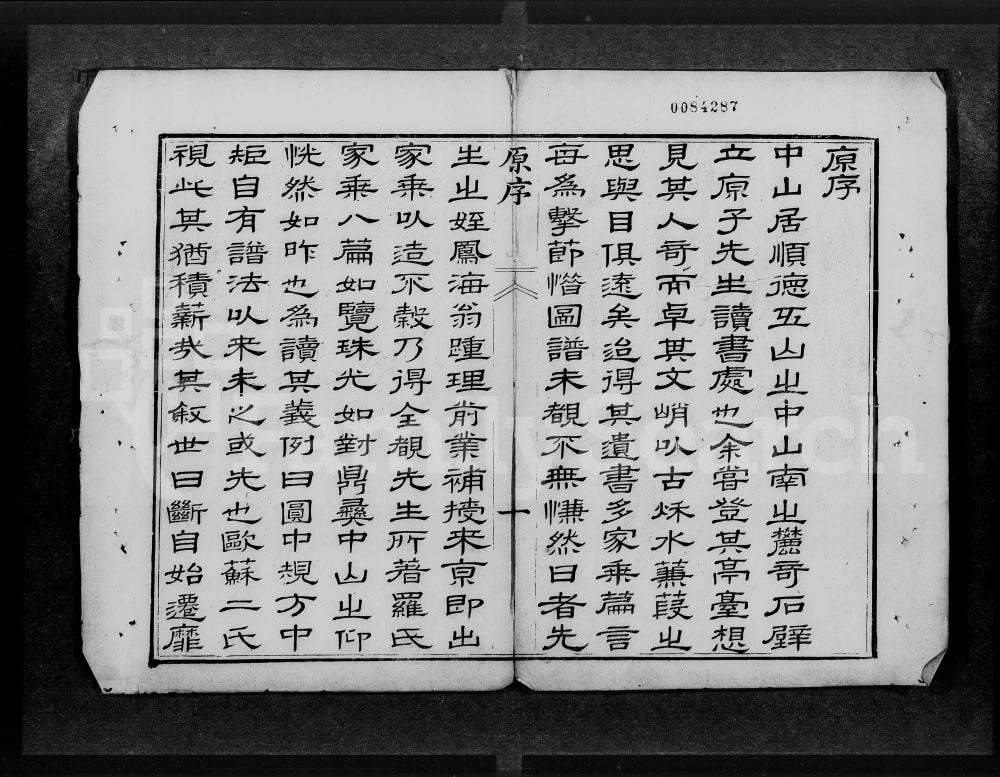 0084287
原序
中山居順德五山之中山南之麓奇石壁
立原子先生讀書處也余嘗登其亭臺想
見其人奇而卓其文峭以古秌水蒹葭之
思與目俱遠矣迨得其遺書多家乘篇言
每為擊節惜圖譜未覩不無慊然日者先
原序
一
生之姪鳳海翁踵理前業補授來京即出
家乘以造不穀乃得全覩先生所著羅氏
家乘八篇如覽珠光如對鼎彝中山之仰
恍然如昨也為讀其義例曰圓中規方中
矩自有譜法以來未之或先也歐蘇二氏
視此其猶積薪㢤其敘世曰斷自始遷靡
FamilySearch